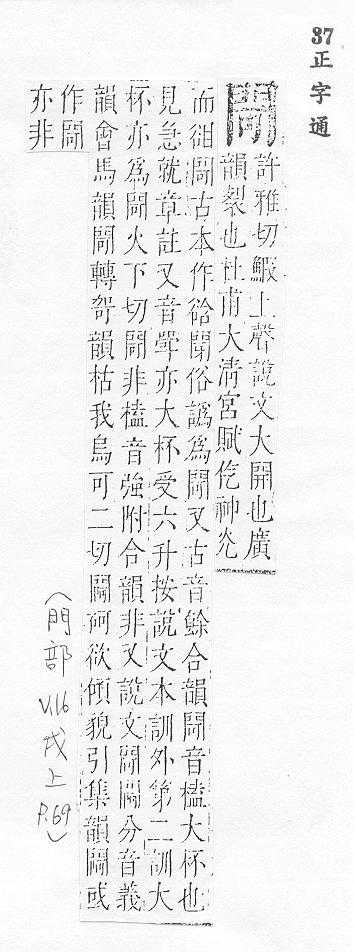 37 正字通
閜
許雅切鰕上聲說文大開也廣
韻裂也杜甫大淸宮賦仡神光
而䦧閜古本作谽閜俗譌爲閜又古音餘合韻閜音榼大杯也
見急就章註又音斝亦大杯受六升按說文本訓外第二訓大
杯亦爲閜火下切閜非榼音強附合韻非又說文閜閜分音義
韻會馬韻閜轉哿韻枯我烏可二切閜砢欲傾貌引集韻閜或
作閜
亦非
(門部 V.16 戌上 P.69)